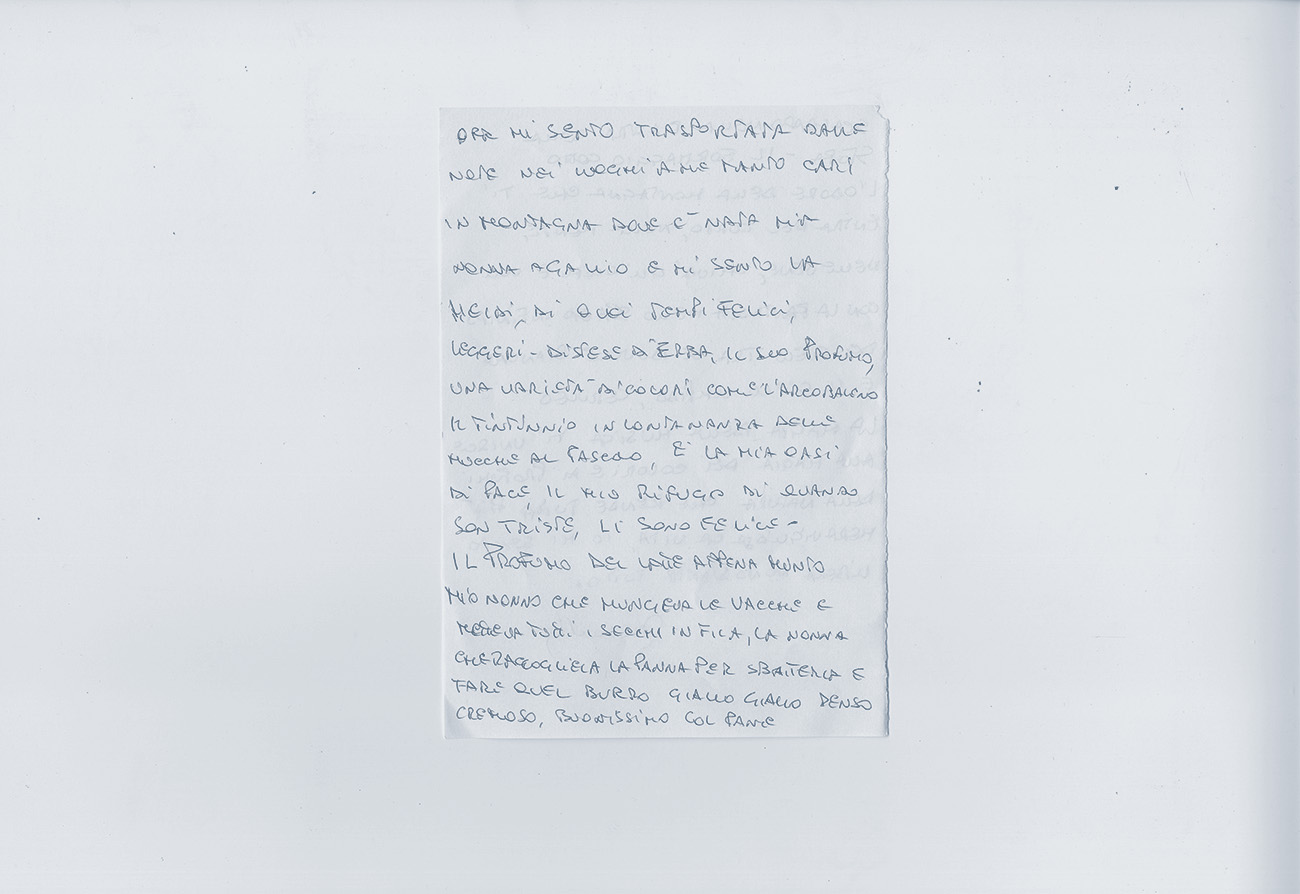 ORA MI SENTO TRASPORTATA DALLE
NOTE NEI LUOGHI A ME TANTO CARI
IN MONTAGNA DOVE E' NATA MIA
NONNA A GALLIO E MI SENTO LA
HEIDI, DI QUEI TEMPI FELICI,
LEGGERI - DISTESE D'ERBA, IL SUO PROFUMO,
UNA VARIETA' DI COLORI COME L'ARCOBALENO
IL TINTINNIO IN LONTANANZA DELLE
MUCCHE AL PASCOLO, E' LA MIA OASI
DI PACE, IL MIO RIFUGIO DI QUANDO
SON TRISTE, LI SONO FELICE -
IL PROFUMO DEL LATTE APPENA MUNTO
MIO NONNO CHE MUNGEVA LE VACCHE E
METTEVA TUTTI I SECCHI IN FILA, LA NONNA
CHE RACCOGLIEVA LA PANNA PER SBATTERLA E
FARE QUEL BURRO GIALLO GIALLO DENSO
CREMOSO, BUONISSIMO COL PANE